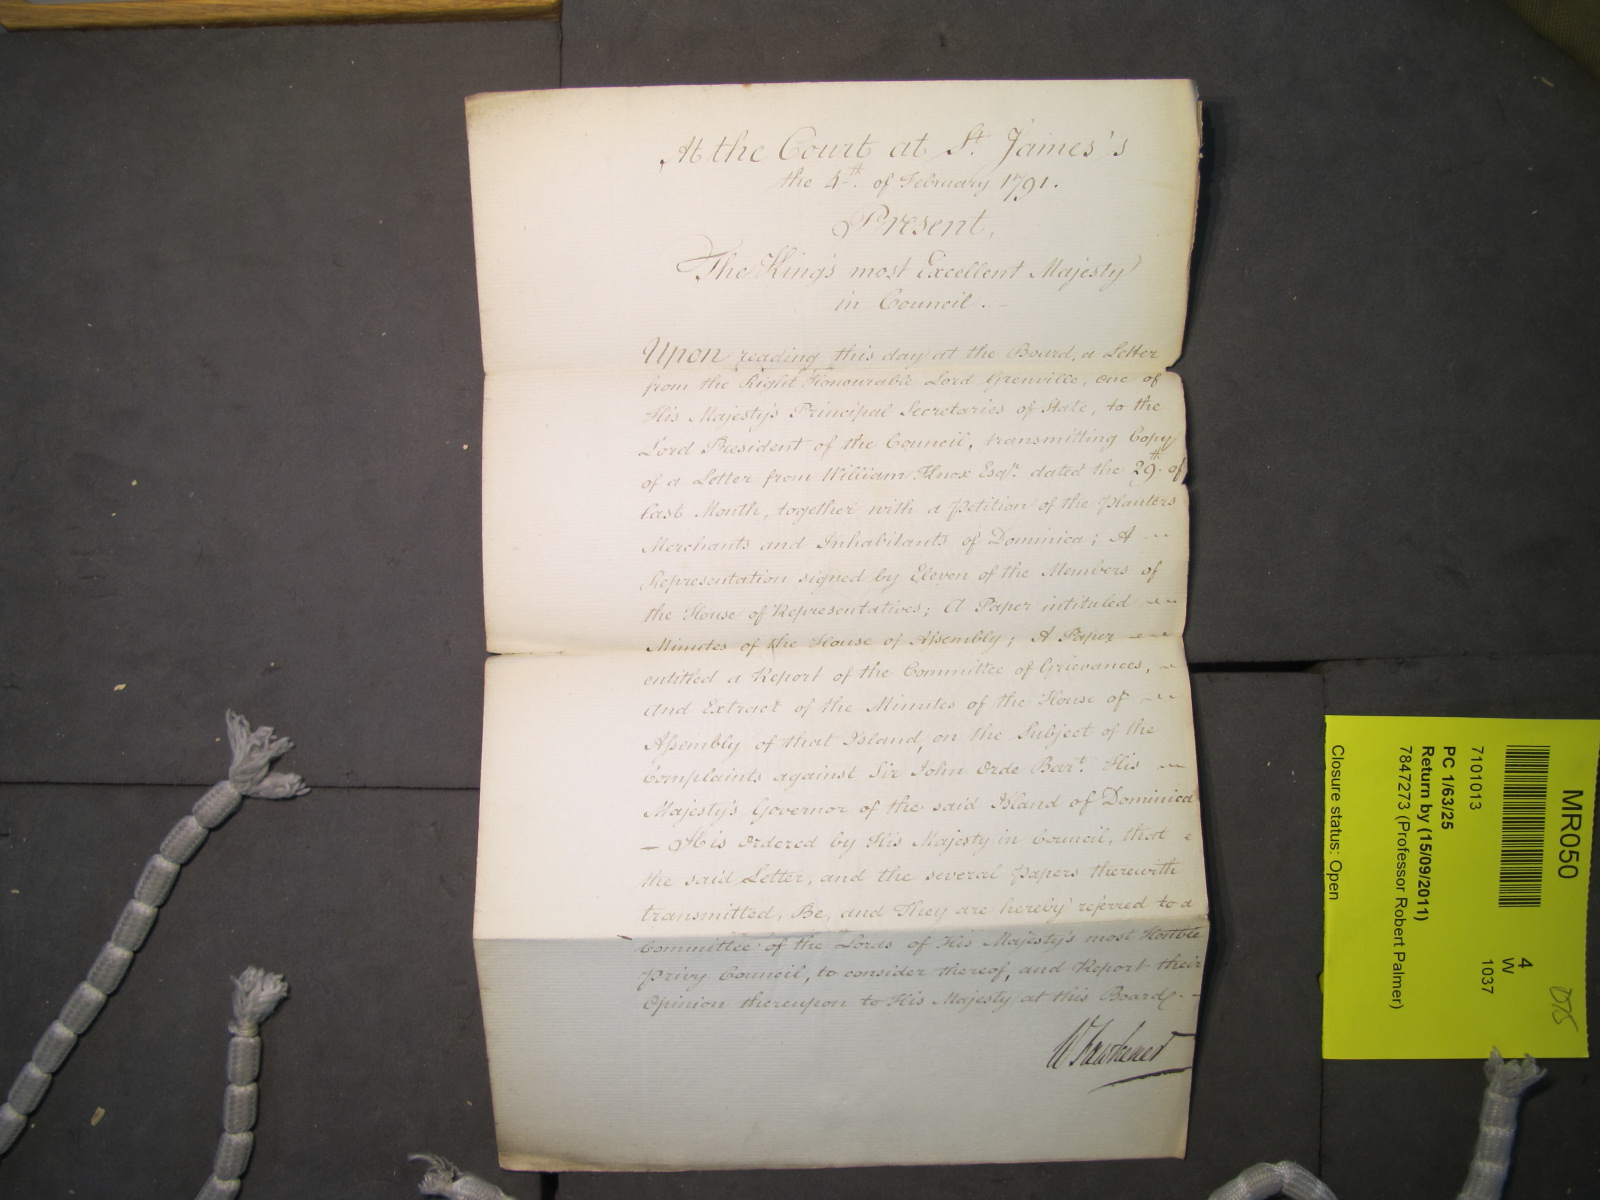 At the Court at St. James's
the 4th. of February 1791.
Present,
The King's most Excellent Majesty
in Council.
Upon reading this day at the Board, a Letter
from the Right Honourable Lord Grenville, one of
His Majesty's Principal Secretaries of State, to the
Lord President of the Council, transmitting Copy
of a Letter from William Knox Esqr. dated the 29th. of
last Month, together with a Petition of the Planters
Merchants and Inhabitants of Dominica; A
Representation signed by Eleven of the Members of
the House of Representatives; A Paper intituled
Minutes of the House of Assembly; A Paper
entitled a Report of the Committee of Grievances,
and Extract of the Minutes of the House of
Assembly of that Island, on the Subject of the
Complaints against Sir John Orde Bart. His
Majesty's Governor of the said Island of Dominica
— It is Ordered by His Majesty in Council, that
the said Letter, and the several Papers therewith
transmitted, Be, and They are hereby referred to a
Committee of the Lords of His Majesty's most Honble
Privy Council, to consider thereof, and Report their
Opinion thereupon to His Majesty at this Board.
W Fawkener
MR050
4
W
1037
7101013
PC 1/63/25
Return by (15/09/2011)
7847273 (Professor Robert Palmer)
Closure status: Open